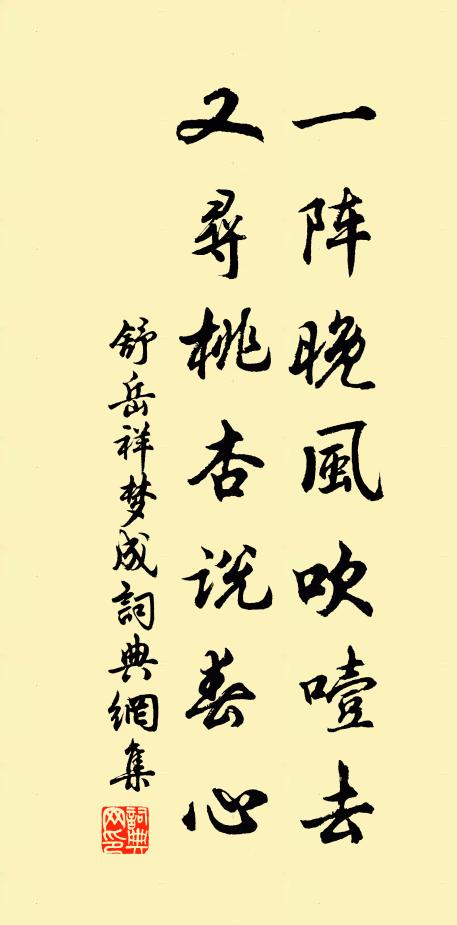 一阵晚风吹噎去
又寻桃杏说春心
舒岳祥梦成詞典網集
詞典网印